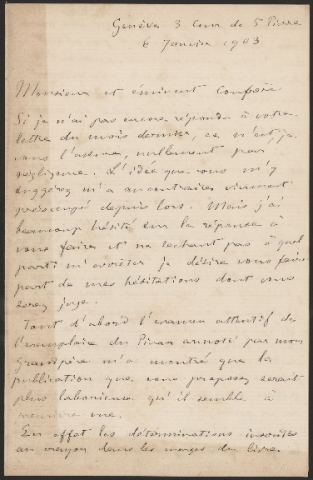 Genève 3 Cour de St Pierre
6 Janvier 1903
Monsieur et éminent confrère
Si je n'ai pas encore répondu à votre
lettre du mois dernier, ce n'est, je
vous l'assure, nullement par
négligence. L'idée que vous m'y
suggérez m'a au contraire vivement
préoccupé depuis lors. Mais j'ai
beaucoup hésité sur la réponse à
vous faire et ne sachant pas à quel
parti m'arrêter je désire vous faire
part de mes hésitations dont vous
serez juge.
Tout d'abord l'examen attentif de
l'exemplaire du Pinax annoté par mon
Grandpère m'a montré que la
publication que vous proposez serait
plus laborieuse qu'il semble à
première vue.
En effet les déterminations inscrites
au crayon dans les marges du livre